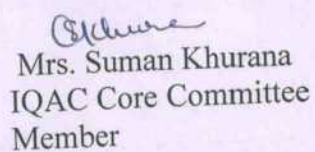 Mrs. Suman Khurana
IQAC Core Committee
Member